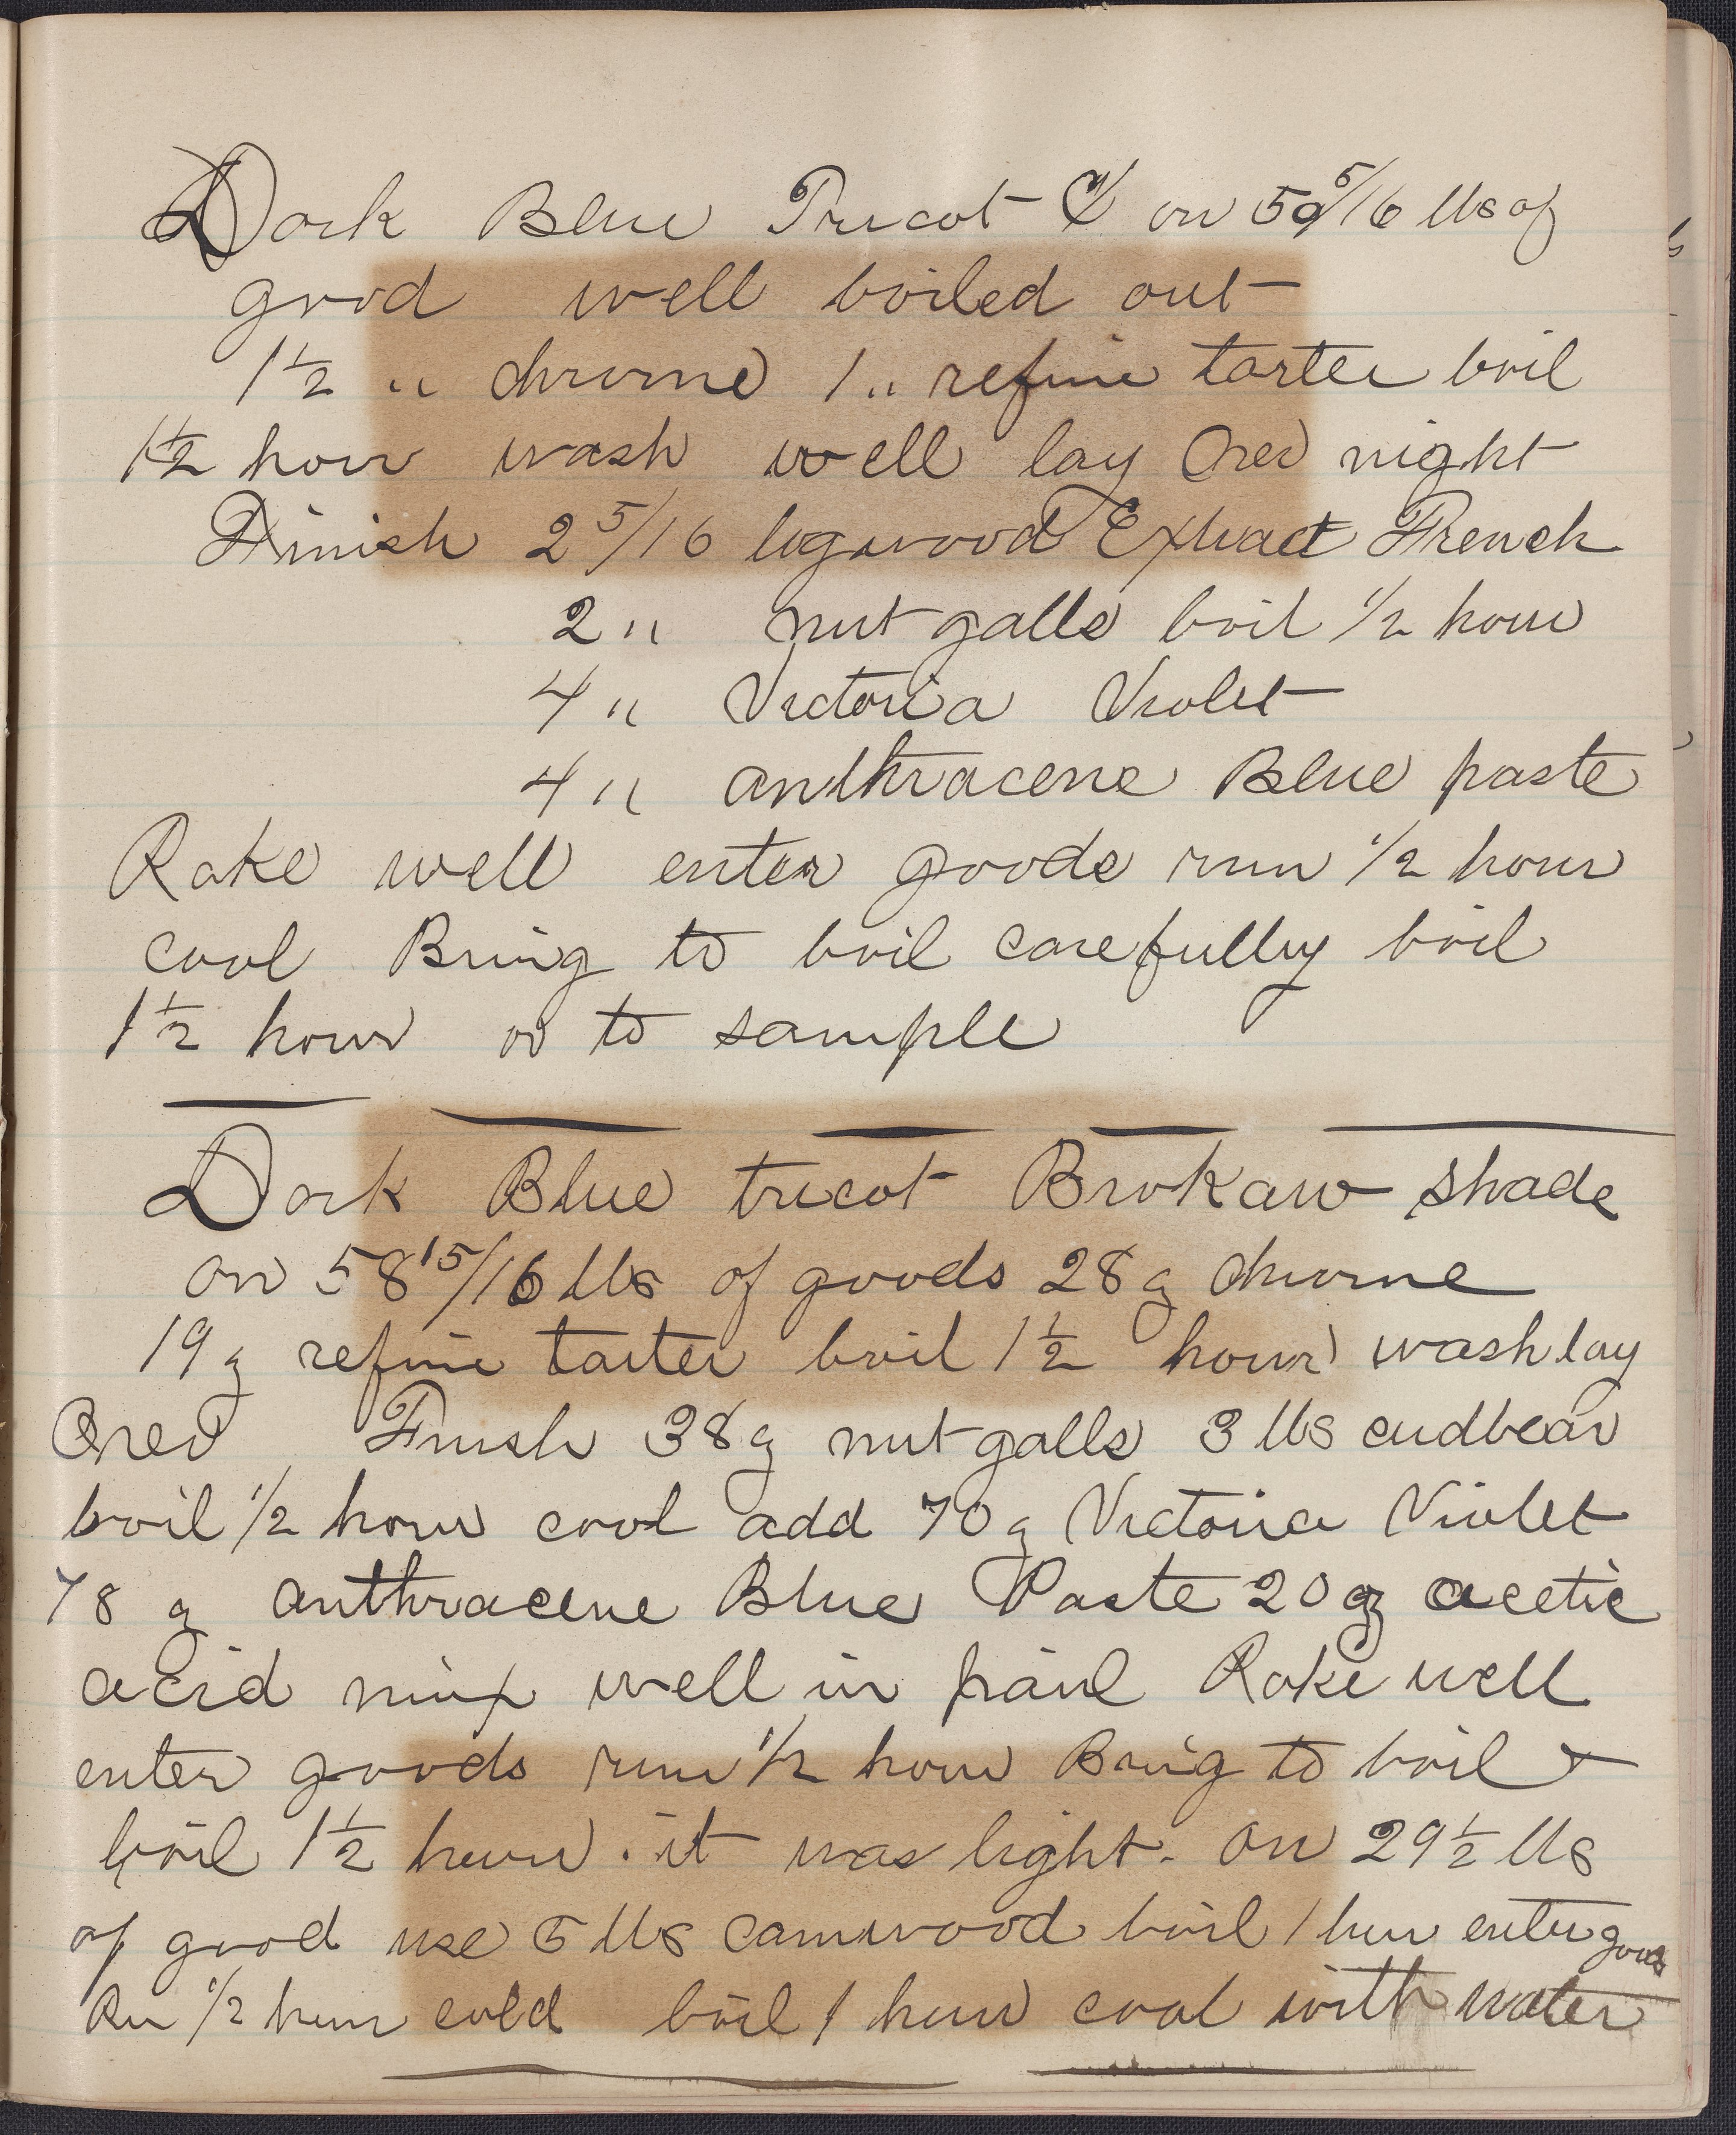 Dark Blue Tricot on 50 5/16 lbs of
good well boiled out
1½ " chrome 1 " refine tarter boil
1½ hour wash well lay Over night
Finish 2 5/16 logwood Extract French
2 " nut galls boil 1/2 hour
4 " Victoria Violet
4 " anthracene Blue paste
Rake well enter goods run 1/2 hour
cool Bring to boil carefully boil
1½ hour or to sample
Dark Blue tricot Brokaw shade
on 58 15/16 lbs of goods 28 g chrome
19 g refine tarter boil 1½ hour wash lay
Over Finish 38 g nut galls 3 lbs cudbear
boil 1/2 hour cool add 70 g Victoria Violet
78 g anthracene Blue Paste 20 g acetic
acid mix well in pail Rake well
enter goods run 1/2 hour Bring to boil &
boil 1½ hour. it was light. on 29½ lbs
of good use 5 lbs camwood boil 1 hour enter goods
Run 1/2 hour cold boil 1 hour cool with water